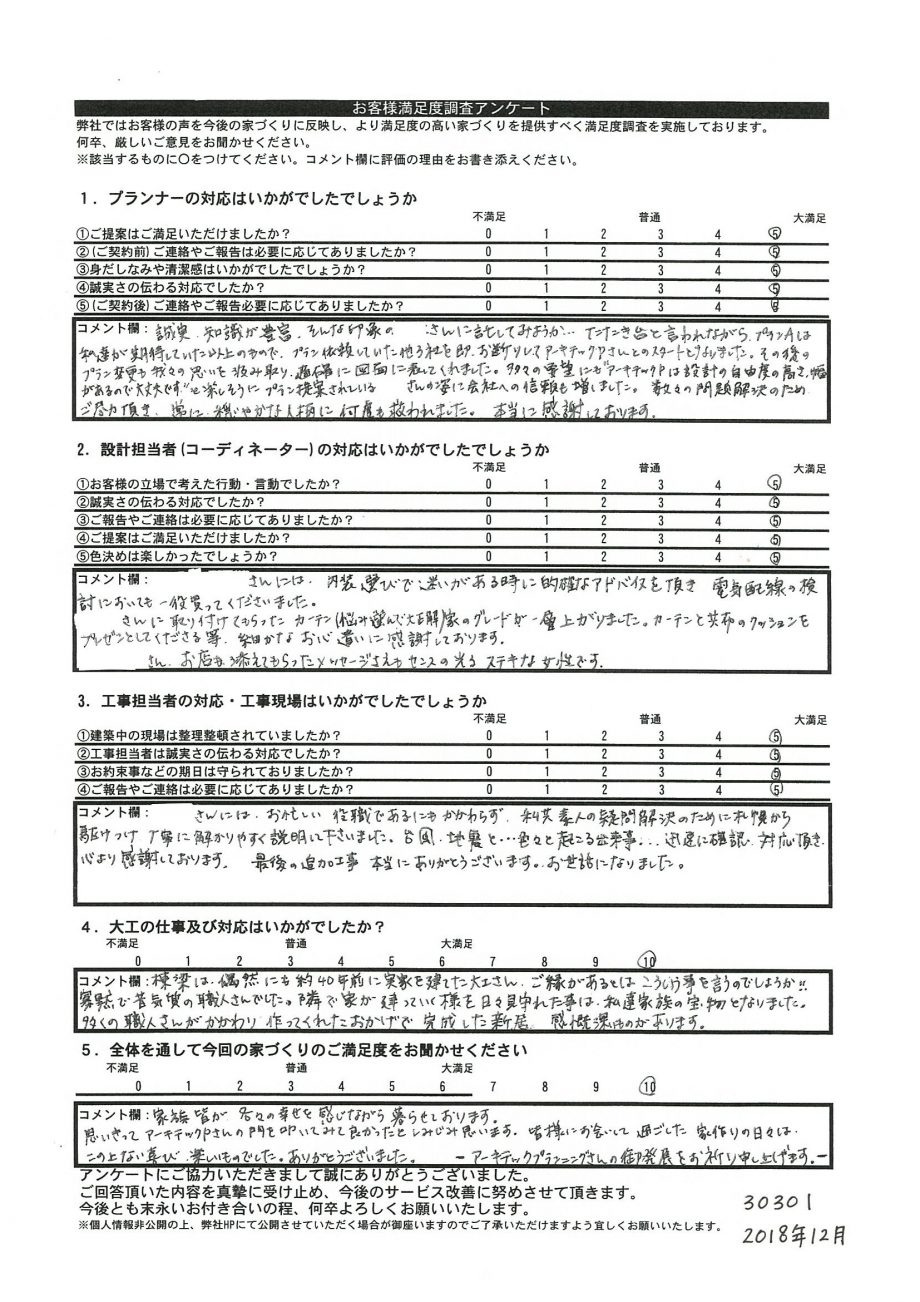 お客様満足度調査アンケート
弊社ではお客様の声を今後の家づくりに反映し、より満足度の高い家づくりを提供すべく満足度調査を実施しております。
何卒、厳しいご意見をお聞かせください。
※該当するものに○をつけてください。コメント欄に評価の理由をお書き添えください。
1．プランナーの対応はいかがでしたでしょうか
不満足 普通 大満足
①ご提案はご満足いただけましたか？ 0 1 2 3 4 ⑤
②(ご契約前)ご連絡やご報告は必要に応じてありましたか？ 0 1 2 3 4 ⑤
③身だしなみや清潔感はいかがでしたでしょうか？ 0 1 2 3 4 ⑤
④誠実さの伝わる対応でしたか？ 0 1 2 3 4 ⑤
⑤(ご契約後)ご連絡やご報告必要に応じてありましたか？ 0 1 2 3 4 ⑤
コメント欄：誠実、知識が豊富、そんな印象の さんに託してみようか… たたき台と言われながら、プランAは
私達が期待していた以上のもので、プラン依頼していた他3社を即、お断りしてアーキテックPさんとのスタートとなりました。その後の
プラン変更も我々の思いを汲み取り、適確に図面に起してくれました。多々の要望にも"アーキテックPは設計の自由度の高さ、幅
があるので大丈夫です"と楽しそうにプラン提案されている さんの姿に会社への信頼も増しました。数々の問題解決のため
ご尽力頂き、常に穏やかな人柄に何度も救われました。本当に感謝しております。
2．設計担当者(コーディネーター)の対応はいかがでしたでしょうか
不満足 普通 大満足
①お客様の立場で考えた行動・言動でしたか？ 0 1 2 3 4 ⑤
②誠実さの伝わる対応でしたか？ 0 1 2 3 4 ⑤
③ご報告やご連絡は必要に応じてありましたか？ 0 1 2 3 4 ⑤
④ご提案はご満足いただけましたか？ 0 1 2 3 4 ⑤
⑤色決めは楽しかったでしょうか？ 0 1 2 3 4 ⑤
コメント欄： さんには、内装選びで迷いがある時に的確なアドバイスを頂き 電気配線の検
討においても一役買ってくださいました。
さんに取り付けてもらったカーテン(悩み選んで大正解)家のグレードが一層上がりました。カーテンと共布のクッションを
プレゼントしてくださる等、細やかなお心遣いに感謝しております。
さん、お店も添えてもらったメッセージさえもセンスの光るステキな女性です。
3．工事担当者の対応・工事現場はいかがでしたでしょうか
不満足 普通 大満足
①建築中の現場は整理整頓されていましたか？ 0 1 2 3 4 ⑤
②工事担当者は誠実さの伝わる対応でしたか？ 0 1 2 3 4 ⑤
③お約束事などの期日は守られておりましたか？ 0 1 2 3 4 ⑤
④ご報告やご連絡は必要に応じてありましたか？ 0 1 2 3 4 ⑤
コメント欄： さんには、お忙しい役職であるにもかかわらず、私共素人の疑問解決のために札幌から
駆けつけ丁寧に解かりやすく説明して下さいました。台風、地震と…色々と起こる出来事… 迅速に確認、対応頂き、
心より感謝しております。 最後の追加工事 本当にありがとうございます。お世話になりました。
4．大工の仕事及び対応はいかがでしたか？
不満足 普通 大満足
0 1 2 3 4 5 6 7 8 9 ⑩
コメント欄：棟梁は、偶然にも約40年前に実家を建てた大工さん、ご縁があるとはこういう事を言うのでしょうか!!
寡黙で昔気質の職人さんでした。隣で家が建っていく様を日々見守れた事は、私達家族の宝物となりました。
多くの職人さんがかかわり作ってくれたおかげで完成した新居、感慨深いものがあります。
5．全体を通して今回の家づくりのご満足度をお聞かせください
不満足 普通 大満足
0 1 2 3 4 5 6 7 8 9 ⑩
コメント欄：家族皆が各々の幸せを感じながら暮らせております。
思いきってアーキテックPさんの門を叩いてみて良かったとしみじみ思います。皆様にお会いして過ごした家作りの日々は、
この上ない喜び、楽しいものでした。ありがとうございました。 ーアーキテックプランニングさんの御発展をお祈り申し上げます。ー
アンケートにご協力いただきまして誠にありがとうございました。
ご回答頂いた内容を真摯に受け止め、今後のサービス改善に努めさせて頂きます。
今後とも末永いお付き合いの程、何卒よろしくお願いいたします。
※個人情報非公開の上、弊社HPにて公開させていただく場合が御座いますのでご了承いただけますよう宜しくお願いいたします。
30301
2018年12月